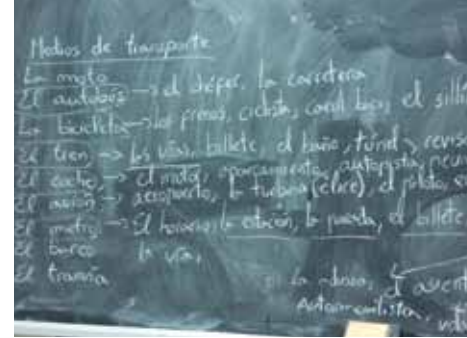 Medios de transporte
La moto
El autobús → el chófer, la carretera
La bicicleta → los frenos, ciclista, carril bici, el sill
El tren → las vías, billete, el baño, túnel, revis
El coche, → el motor, aparcamiento, autopista, neu
El avión, → aeropuerto, la turbina (élice), el piloto,
El metro, → El horario, la estación, la puerta, el billete
El barco
El tranvía la vía,
la aduana, el ascent